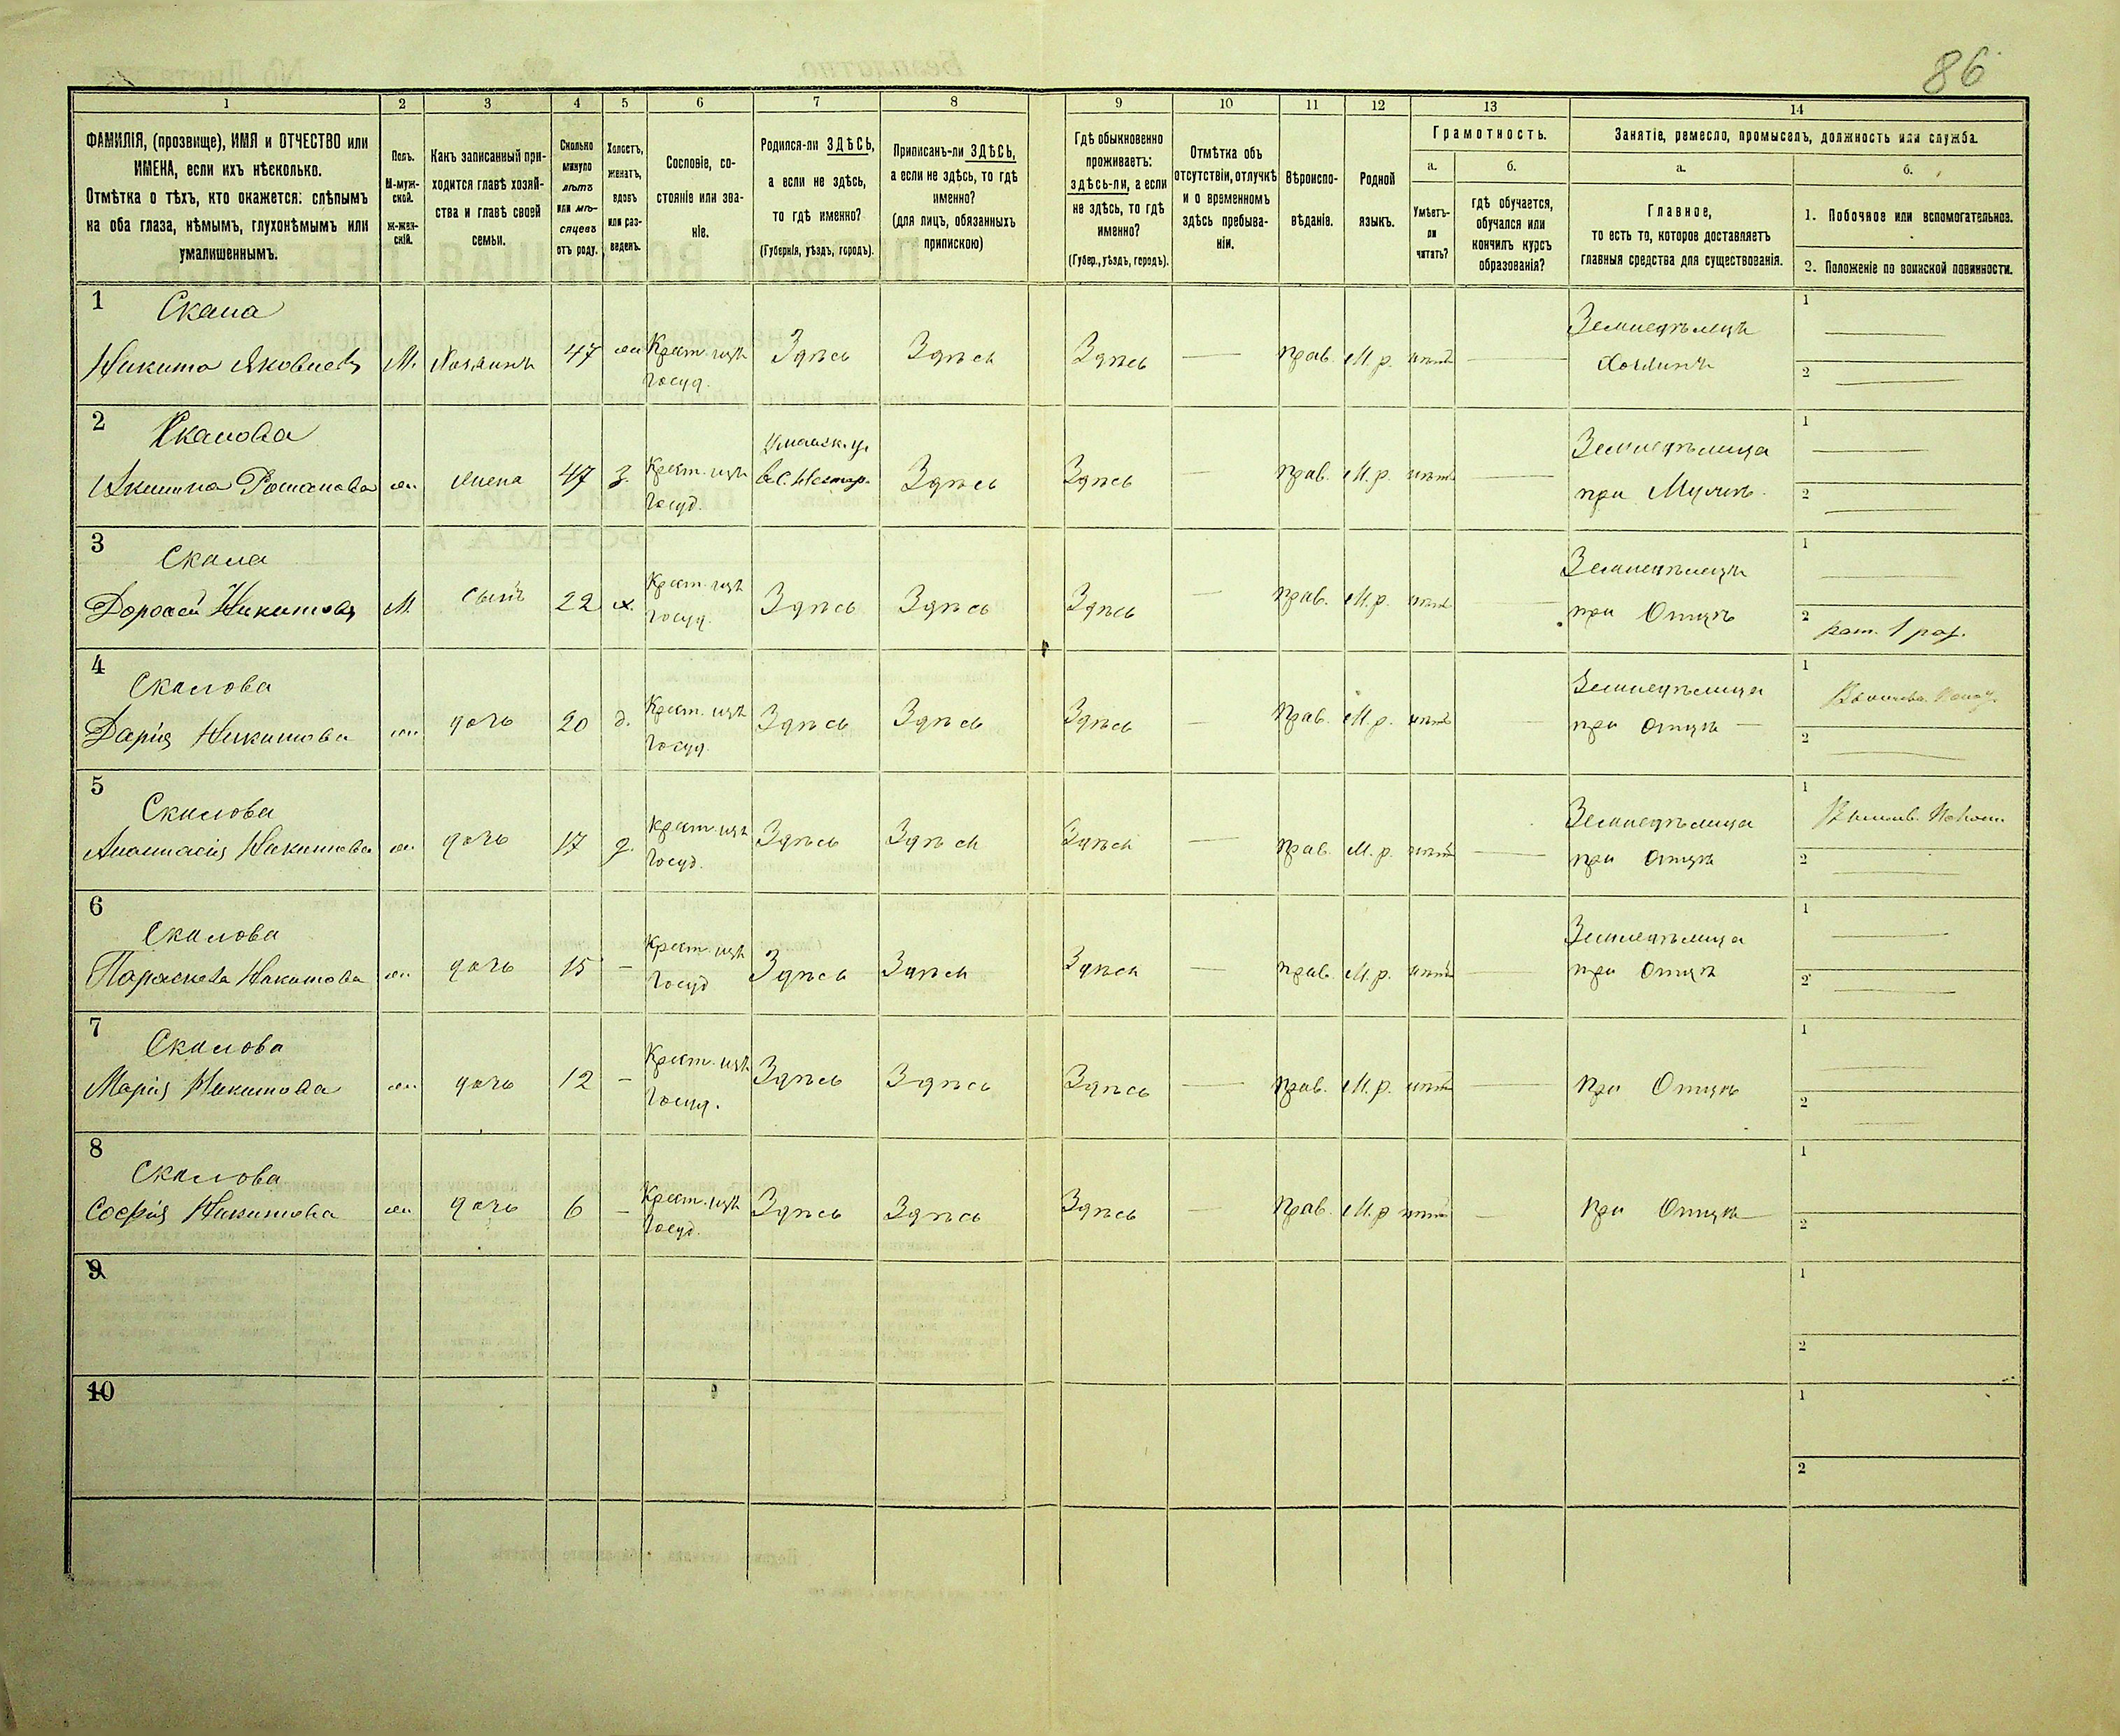 86
1 2 3 4 5 6 7 8 9 10 11 12 13 14
ФАМИЛІЯ, (прозвище), ИМЯ и ОТЧЕСТВО или
ИМЕНА, если ихъ нѣсколько.
Отмѣтка о тѣхъ, кто окажется: слѣпымъ
на оба глаза, нѣмымъ, глухонѣмымъ или
умалишеннымъ.
Полъ.
М-муж-
ской.
ж-жен-
скій.
Какъ записанный при-
ходится главѣ хозяй-
ства и главѣ своей
семьи.
Сколько
минуло
лѣтъ
или мѣ-
сяцевъ
отъ роду.
Холостъ,
женатъ,
вдовъ
или раз-
веденъ.
Сословіе, со-
стояніе или зва-
ніе.
Родился-ли ЗДѢСЬ,
а если не здѣсь,
то гдѣ именно?
(Губернія, уѣздъ, городъ).
Приписанъ-ли ЗДѢСЬ,
а если не здѣсь, то гдѣ
именно?
(для лицъ, обязанныхъ
припискою)
Гдѣ обыкновенно
проживаетъ:
здѣсь-ли, а если
не здѣсь, то гдѣ
именно?
(Губер., уѣздъ, городъ).
Отмѣтка объ
отсутствіи, отлучкѣ
и о временномъ
здѣсь пребыва-
ніи.
Вѣроиспо-
вѣданіе.
Родной
языкъ.
Грамотность.
а.
Умѣетъ-
ли
читать?
б.
гдѣ обучается,
обучался или
кончилъ курсъ
образованія?
Занятіе, ремесло, промыселъ, должность или служба.
а.
Главное,
то есть то, которое доставляетъ
главныя средства для существованія.
б.
1. Побочное или вспомогательное.
2. Положеніе по воинской повинности.
1 Скала Земледѣлецъ 1
Никита Яковлевъ М. Хозяинъ 47 ж Крест. изъ Здѣсь Здѣсь Здѣсь — прав. М. р. нѣтъ — Хозяинъ 2
Госуд.
2 Скалова Земледѣлица 1
Романова ж. жена 47 з. Крест. изъ Здѣсь Здѣсь — прав. М. р. нѣтъ — при Мужѣ. 2
Госуд.
3 Скала Земледѣлецъ 1
Дорофей Никитовъ М. сынъ 22 х. Крест. изъ Здѣсь Здѣсь Здѣсь — прав. М. р. нѣтъ — при Отцѣ 2 рат. 1 раз.
Госуд.
4 Скалова Земледѣлица 1
Дарія Никитова ж. дочь 20 д. Крест. изъ Здѣсь Здѣсь Здѣсь — прав. М. р. нѣтъ — при Отцѣ — 2
Госуд.
5 Скалова Земледѣлица 1
Анастасія Никитова ж. дочь 17 д. Крест. изъ Здѣсь Здѣсь Здѣсь — прав. М. р. нѣтъ — при Отцѣ 2
Госуд.
6 Скалова Земледѣлица 1
Параскева Никитова ж. дочь 15 — Крест. изъ Здѣсь Здѣсь Здѣсь — прав. М. р. нѣтъ — при Отцѣ 2
Госуд
7 Скалова 1
Марія Никитова ж. дочь 12 — Крест. изъ Здѣсь Здѣсь Здѣсь — прав. М. р. нѣтъ — при Отцѣ 2
Госуд.
8 Скалова 1
Софія Никитова ж. дочь 6 — Крест. изъ Здѣсь Здѣсь Здѣсь — прав. М. р нѣтъ — при Отцѣ 2
Госуд.
9 1
2
10 1
2